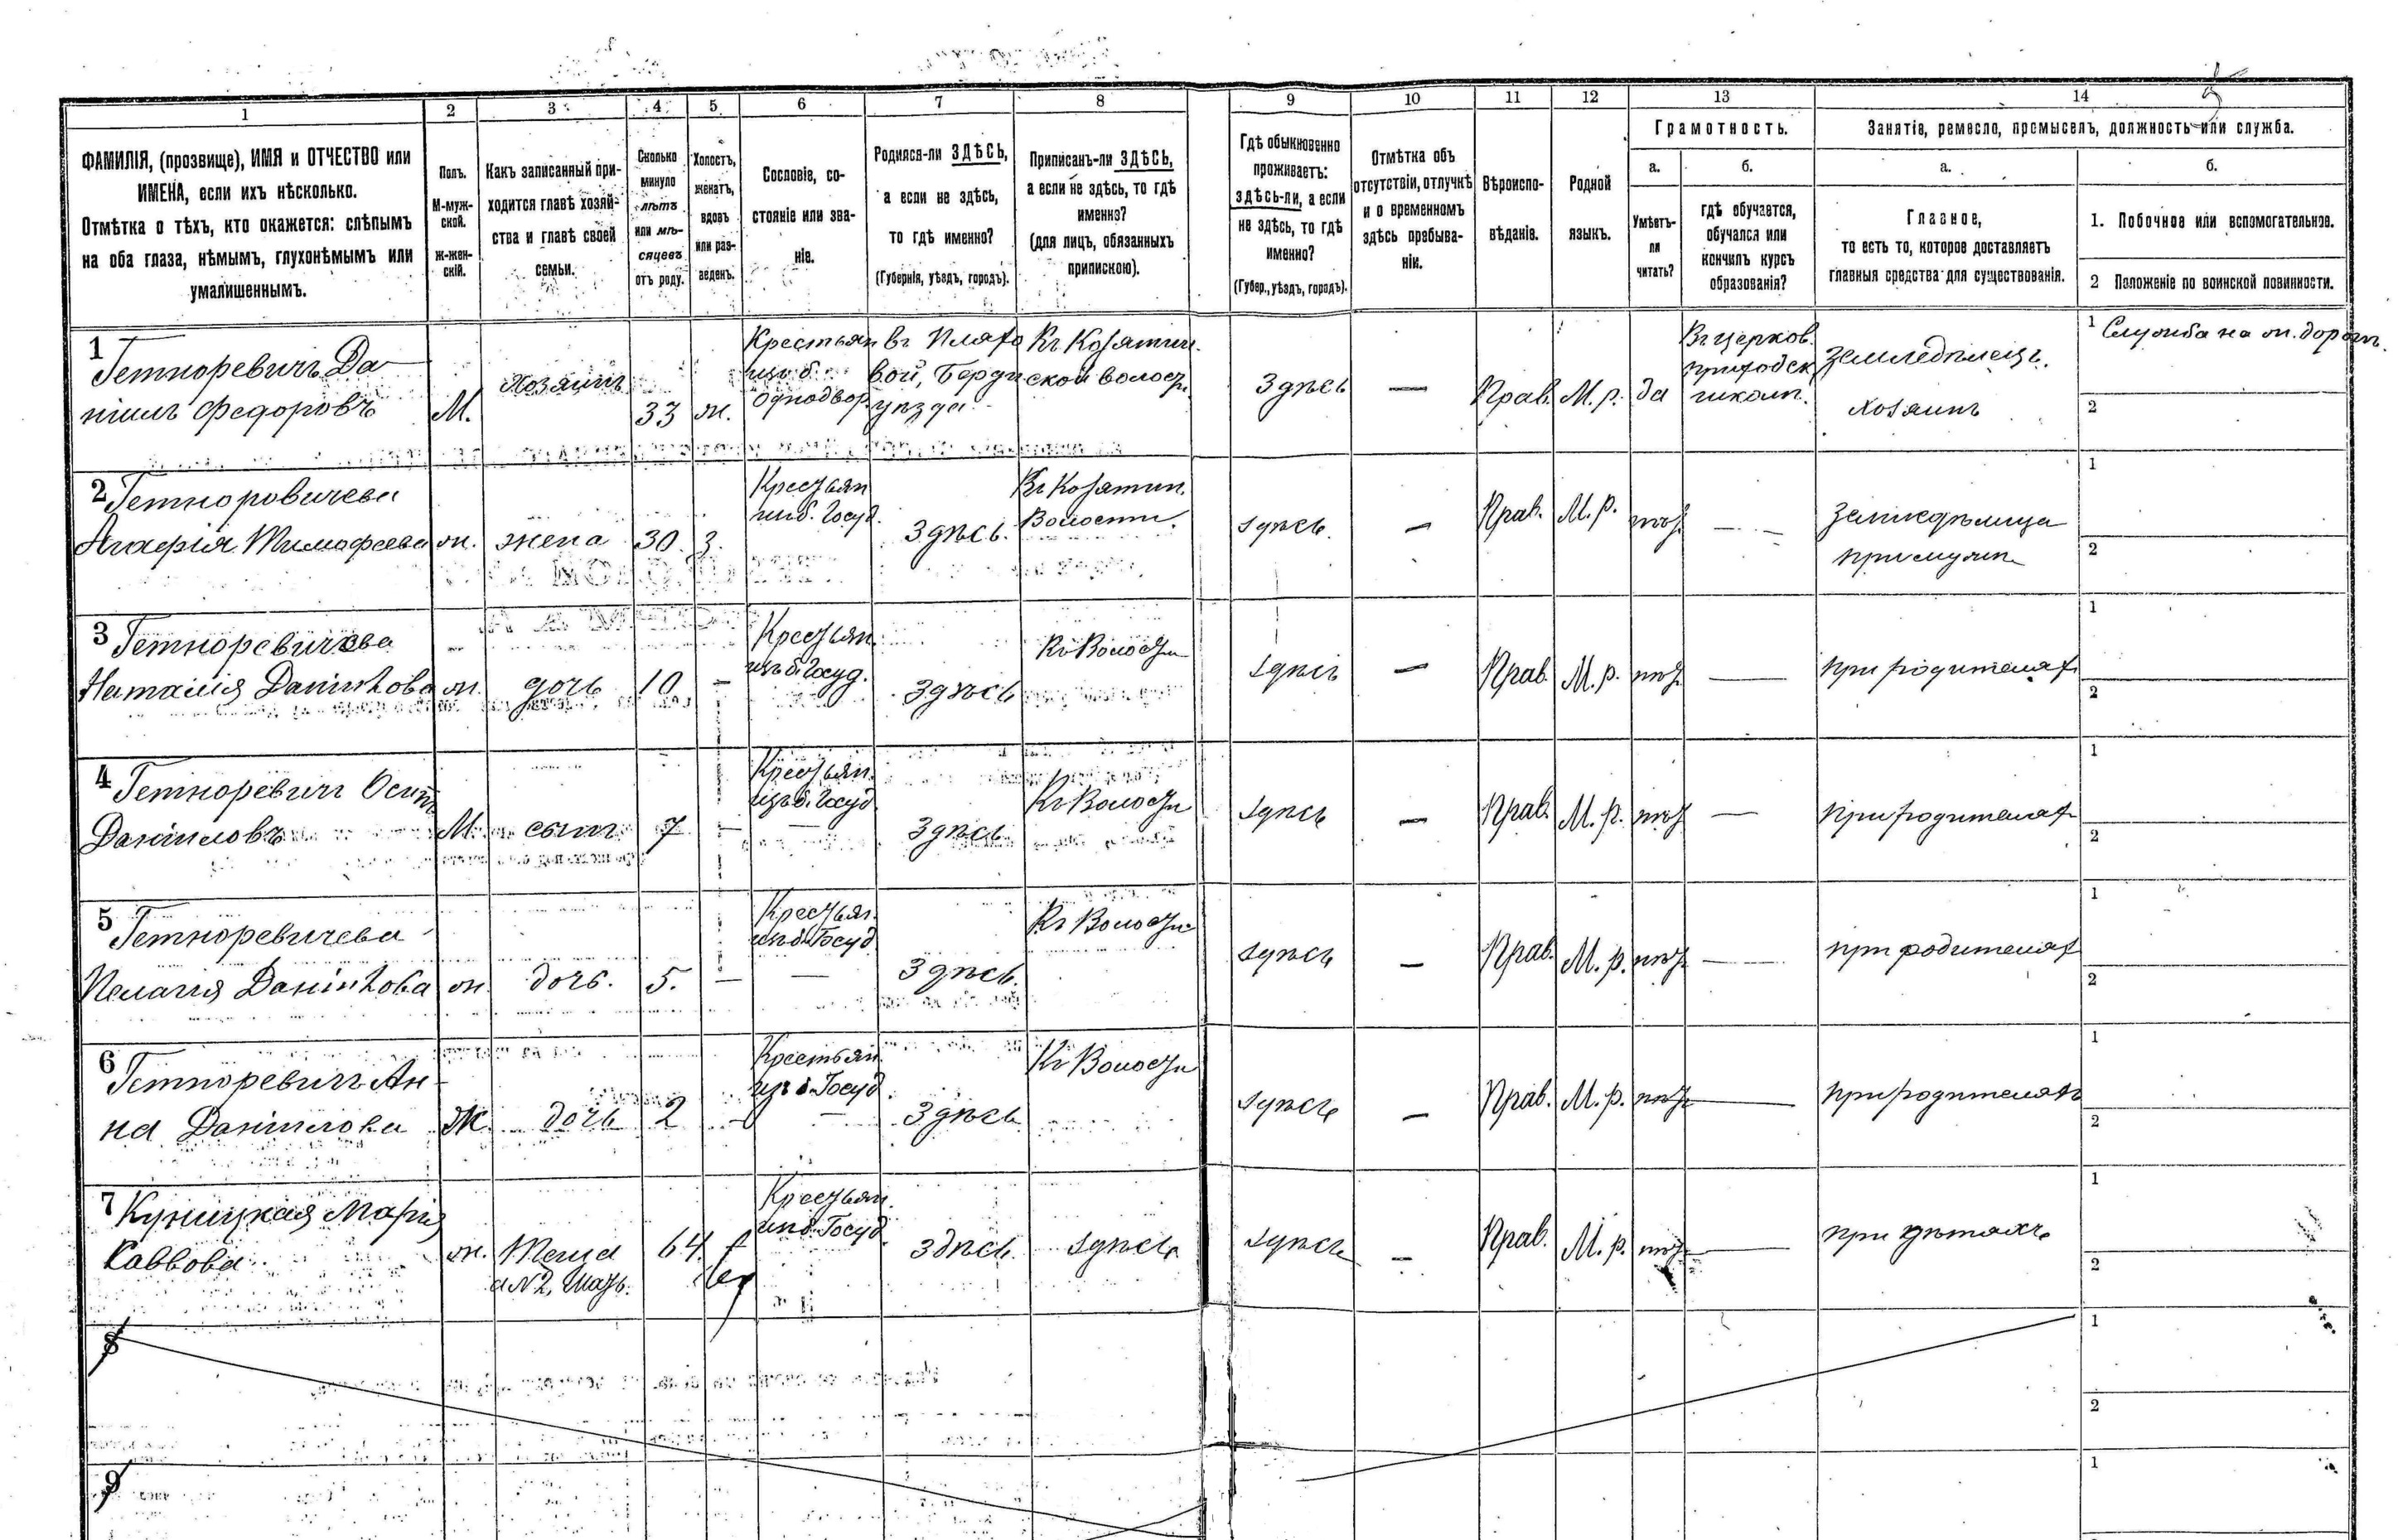 1
2
3
4
5
6
7
8
9
10
11
12
13
14
ФАМИЛІЯ, (прозвище), ИМЯ и ОТЧЕСТВО или
ИМЕНА, если ихъ нѣсколько.
Отмѣтка о тѣхъ, кто окажется: слѣпымъ
на оба глаза, нѣмымъ, глухонѣмымъ или
умалишеннымъ.
Полъ.
М-муж-
ской.
Ж-жен-
скій.
Какъ записанный при-
ходится главѣ хозяй-
ства и главѣ своей
семьи.
Сколько
минуло
лѣтъ
или мѣ-
сяцевъ
отъ роду.
Холостъ,
женатъ,
вдовъ
или раз-
веденъ.
Сословіе, со-
стояніе или зва-
ніе.
Родился-ли ЗДѢСЬ,
а если не здѣсь,
то гдѣ именно?
(Губернія, уѣздъ, городъ).
Приписанъ-ли ЗДѢСЬ,
а если не здѣсь, то гдѣ
именно?
(для лицъ, обязанныхъ
припискою).
Гдѣ обыкновенно
проживаетъ:
ЗДѢСЬ-ли, а если
не здѣсь, то гдѣ
именно?
(Губер., уѣздъ, городъ).
Отмѣтка объ
отсутствіи, отлучкѣ
и о временномъ
здѣсь пребыва-
ніи.
Вѣроиспо-
вѣданіе.
Родной
языкъ.
Грамотность.
а.
Умѣетъ-
ли
читать?
б.
гдѣ обучается,
обучался или
кончилъ курсъ
образованія?
Занятіе, ремесло, промыселъ, должность или служба.
а.
Главное,
то есть то, которое доставляетъ
главныя средства для существованія.
б.
1. Побочное или вспомогательное.
2 Положеніе по воинской повинности.
1
Гетноревичъ Да-
ніилъ Федоровъ
М.
Хозяинъ
33
ж.
Крестьян
изъ б.
Однодвор.
въ
Бердич
уѣзда
Къ Козятин.
ской волости
Здѣсь
—
Прав.
М. р.
да
Въ церков.
приходск.
школѣ.
Земледѣлецъ.
Хозяинъ
1 Служба на ж. дорогѣ.
2
2
Гетноровичева
Агафія Тимофеева
ж.
жена
30
З.
Крестьян
изъ б. Госуд.
Здѣсь.
Къ Козятин.
Волости.
Здѣсь.
—
Прав.
М. р.
нѣт
—
Земледѣлица
при мужѣ
1
2
3
Гетноревичева
Наталія Данілова
ж.
дочь
10
—
Крестьян.
изъ б. Госуд.
Здѣсь
Къ Волости
Здѣсь
—
Прав.
М. р.
нѣт
—
при родителях
1
2
4
Гетноревичъ Осипъ
Даніиловъ
М.
сынъ
7
—
Крестьян.
изъ б. Госуд
Здѣсь
Къ Волости
Здѣсь
—
Прав.
М. р.
нѣт
—
при родителях
1
2
5
Гетноревичева
Пелагія Данілова
ж.
дочь.
5.
—
Крестьян.
изъ б. Госуд
Здѣсь.
Къ Волости
Здѣсь
—
Прав.
М. р.
нѣт
—
при родителях
1
2
6
Гетноревичъ Ан-
на Даніилова
Ж.
дочь
2
—
Крестьян.
изъ б. Госуд.
Здѣсь
Къ Волости
Здѣсь
—
Прав.
М. р.
нѣт
—
при родителях
1
2
7
Куницкая Марія
Саввова
ж.
Теща
64.
Крестьян.
изъ б. Госуд.
Здѣсь.
Здѣсь
Здѣсь
—
Прав.
М. р.
нѣт
—
при дѣтяхъ
1
2
8
1
2
9
1